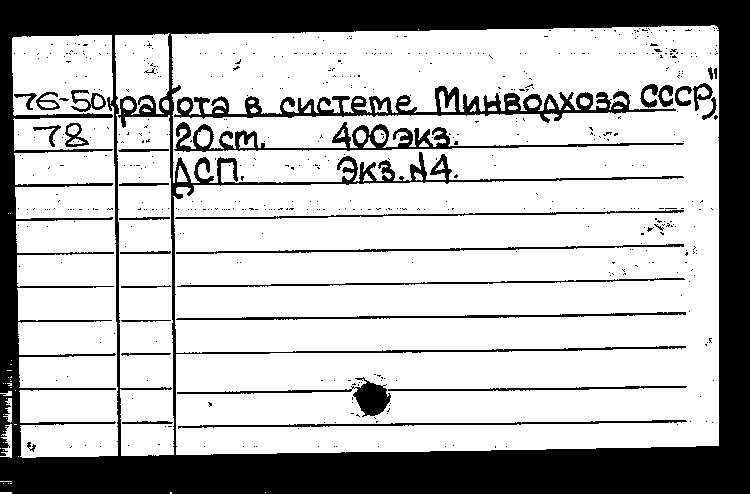 76-50к работа в системе Минводхоза СССР",
78 20 ст. 400 экз.
ДСП. Экз. N4.